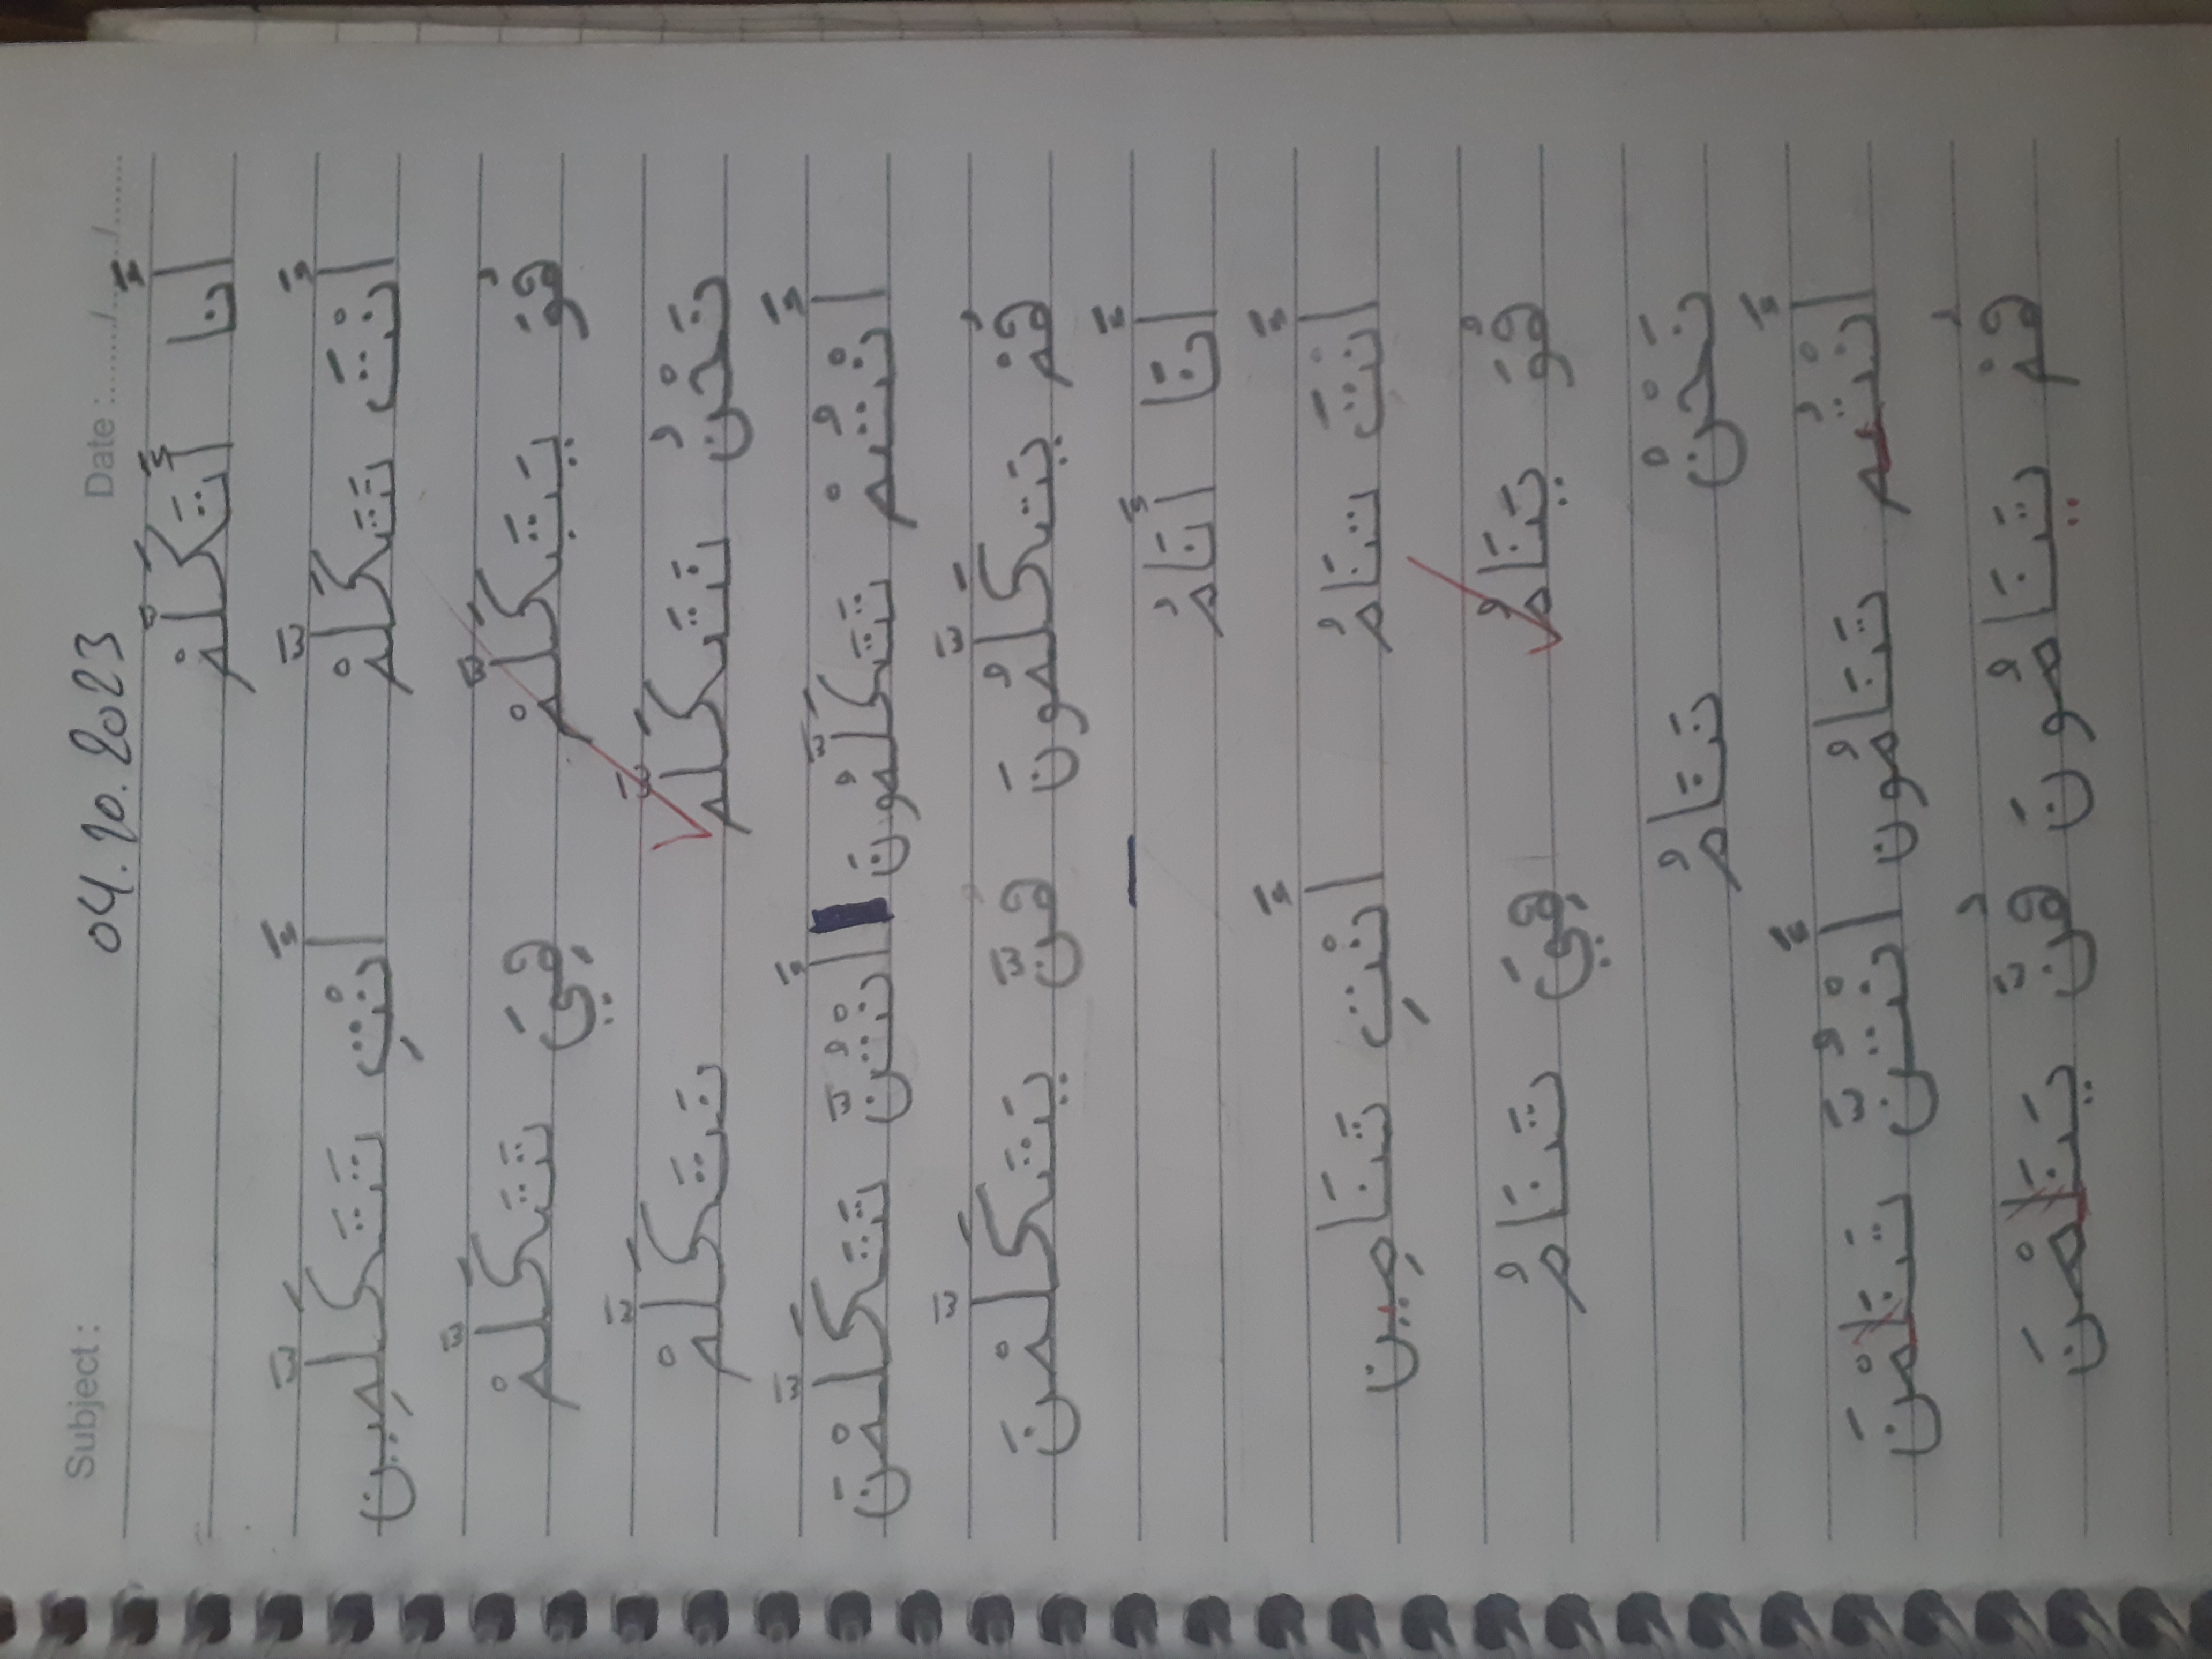 Subject : Date : ....../....../......
04.10.2023
أَنا أَتَكَلَّمْ
أَنْتَ تَتَكَلَّمْ أَنْتِ تَتَكَلَّمِين
هُوَ يَتَكَلَّمْ هِيَ تَتَكَلَّمْ
نَحْنُ نَتَكَلَّم نَتَكَلَّمْ
أَنْتُمْ تَتَكَلَّمُونَ أَنْتُنَّ تَتَكَلَّمْنَ
هُمْ يَتَكَلَّمُونَ هُنَّ يَتَكَلَّمْنَ
أَنَا أَنَامُ
أَنْتَ تَنَامُ أَنْتِ تَنَامِين
هُوَ يَنَامُ هِيَ تَنَامُ
نَحْنْ نَنَامُ
أَنْتُم تَنَامُون أَنْتُنَّ تَنَامْنَ
هُمْ يَنَامُونَ هُنَّ يَنَامْنَ